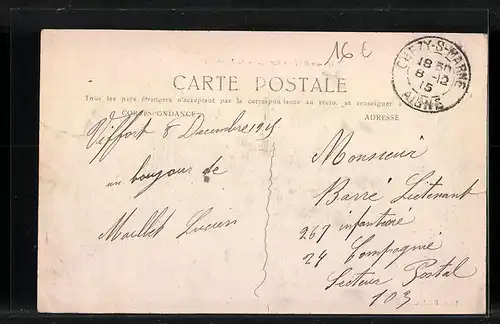 16 €
CHEZY-S-MARNE
18 30
8 -12
15
AISNE
CARTE POSTALE
Tous les pays étrangers n'acceptant pas la correspondance au recto, se renseigner à
CORRESPONDANCE
ADRESSE
Viffort 8 Decembre 1915
un bonjour de
Maillet Lucien
Monsieur
Barré Lieutenant
267 infanterie
24 Compagnie
Secteur Postal
103